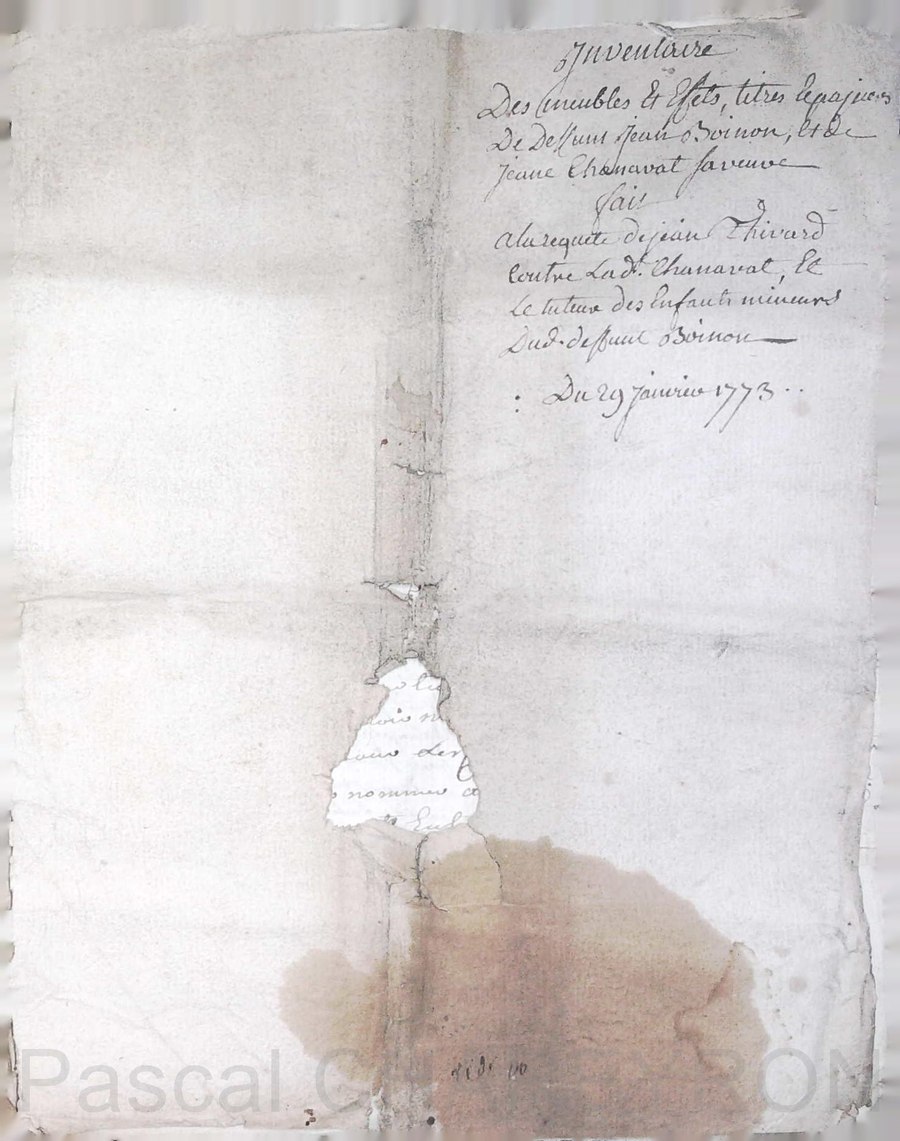 Inventaire
Des meubles Et Effets, titres Et papiers
De Deffunt Jean Boinon, Et de
Jeane Chanavat sa veuve
fait
a la requete de jean Thivard
Contre Lad. Chanavat, Et
Le tuteur des Enfants mineurs
Dud. deffunt Boinon
Du 29 janvier 1773
nommer
Pascal